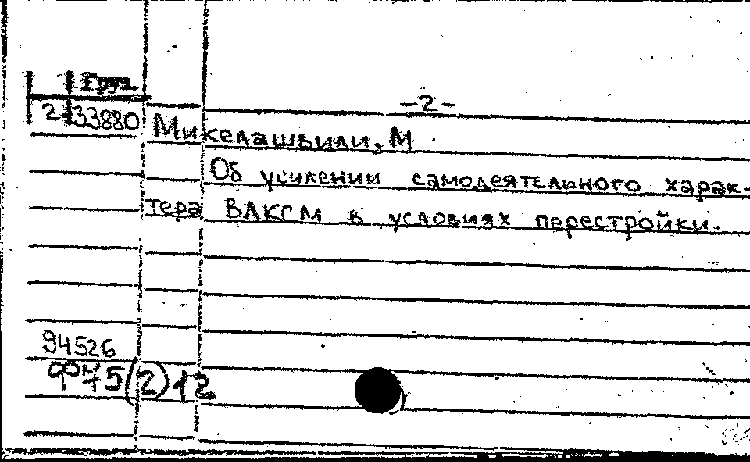 Груз.
-2-
2 33880
Микелашвили, М
Об усилении самодеятельного харак-
тера ВЛКСМ в условиях перестройки.
94526
5(2)12